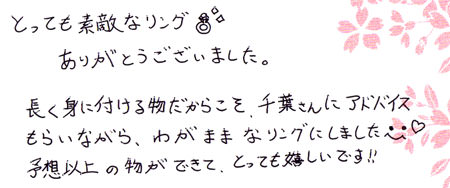 とっても素敵なリング
ありがとうございました。
長く身に付ける物だからこそ、千葉さんにアドバイス
もらいながら、わがままなリングにしました
予想以上の物ができて、とっても嬉しいです!!